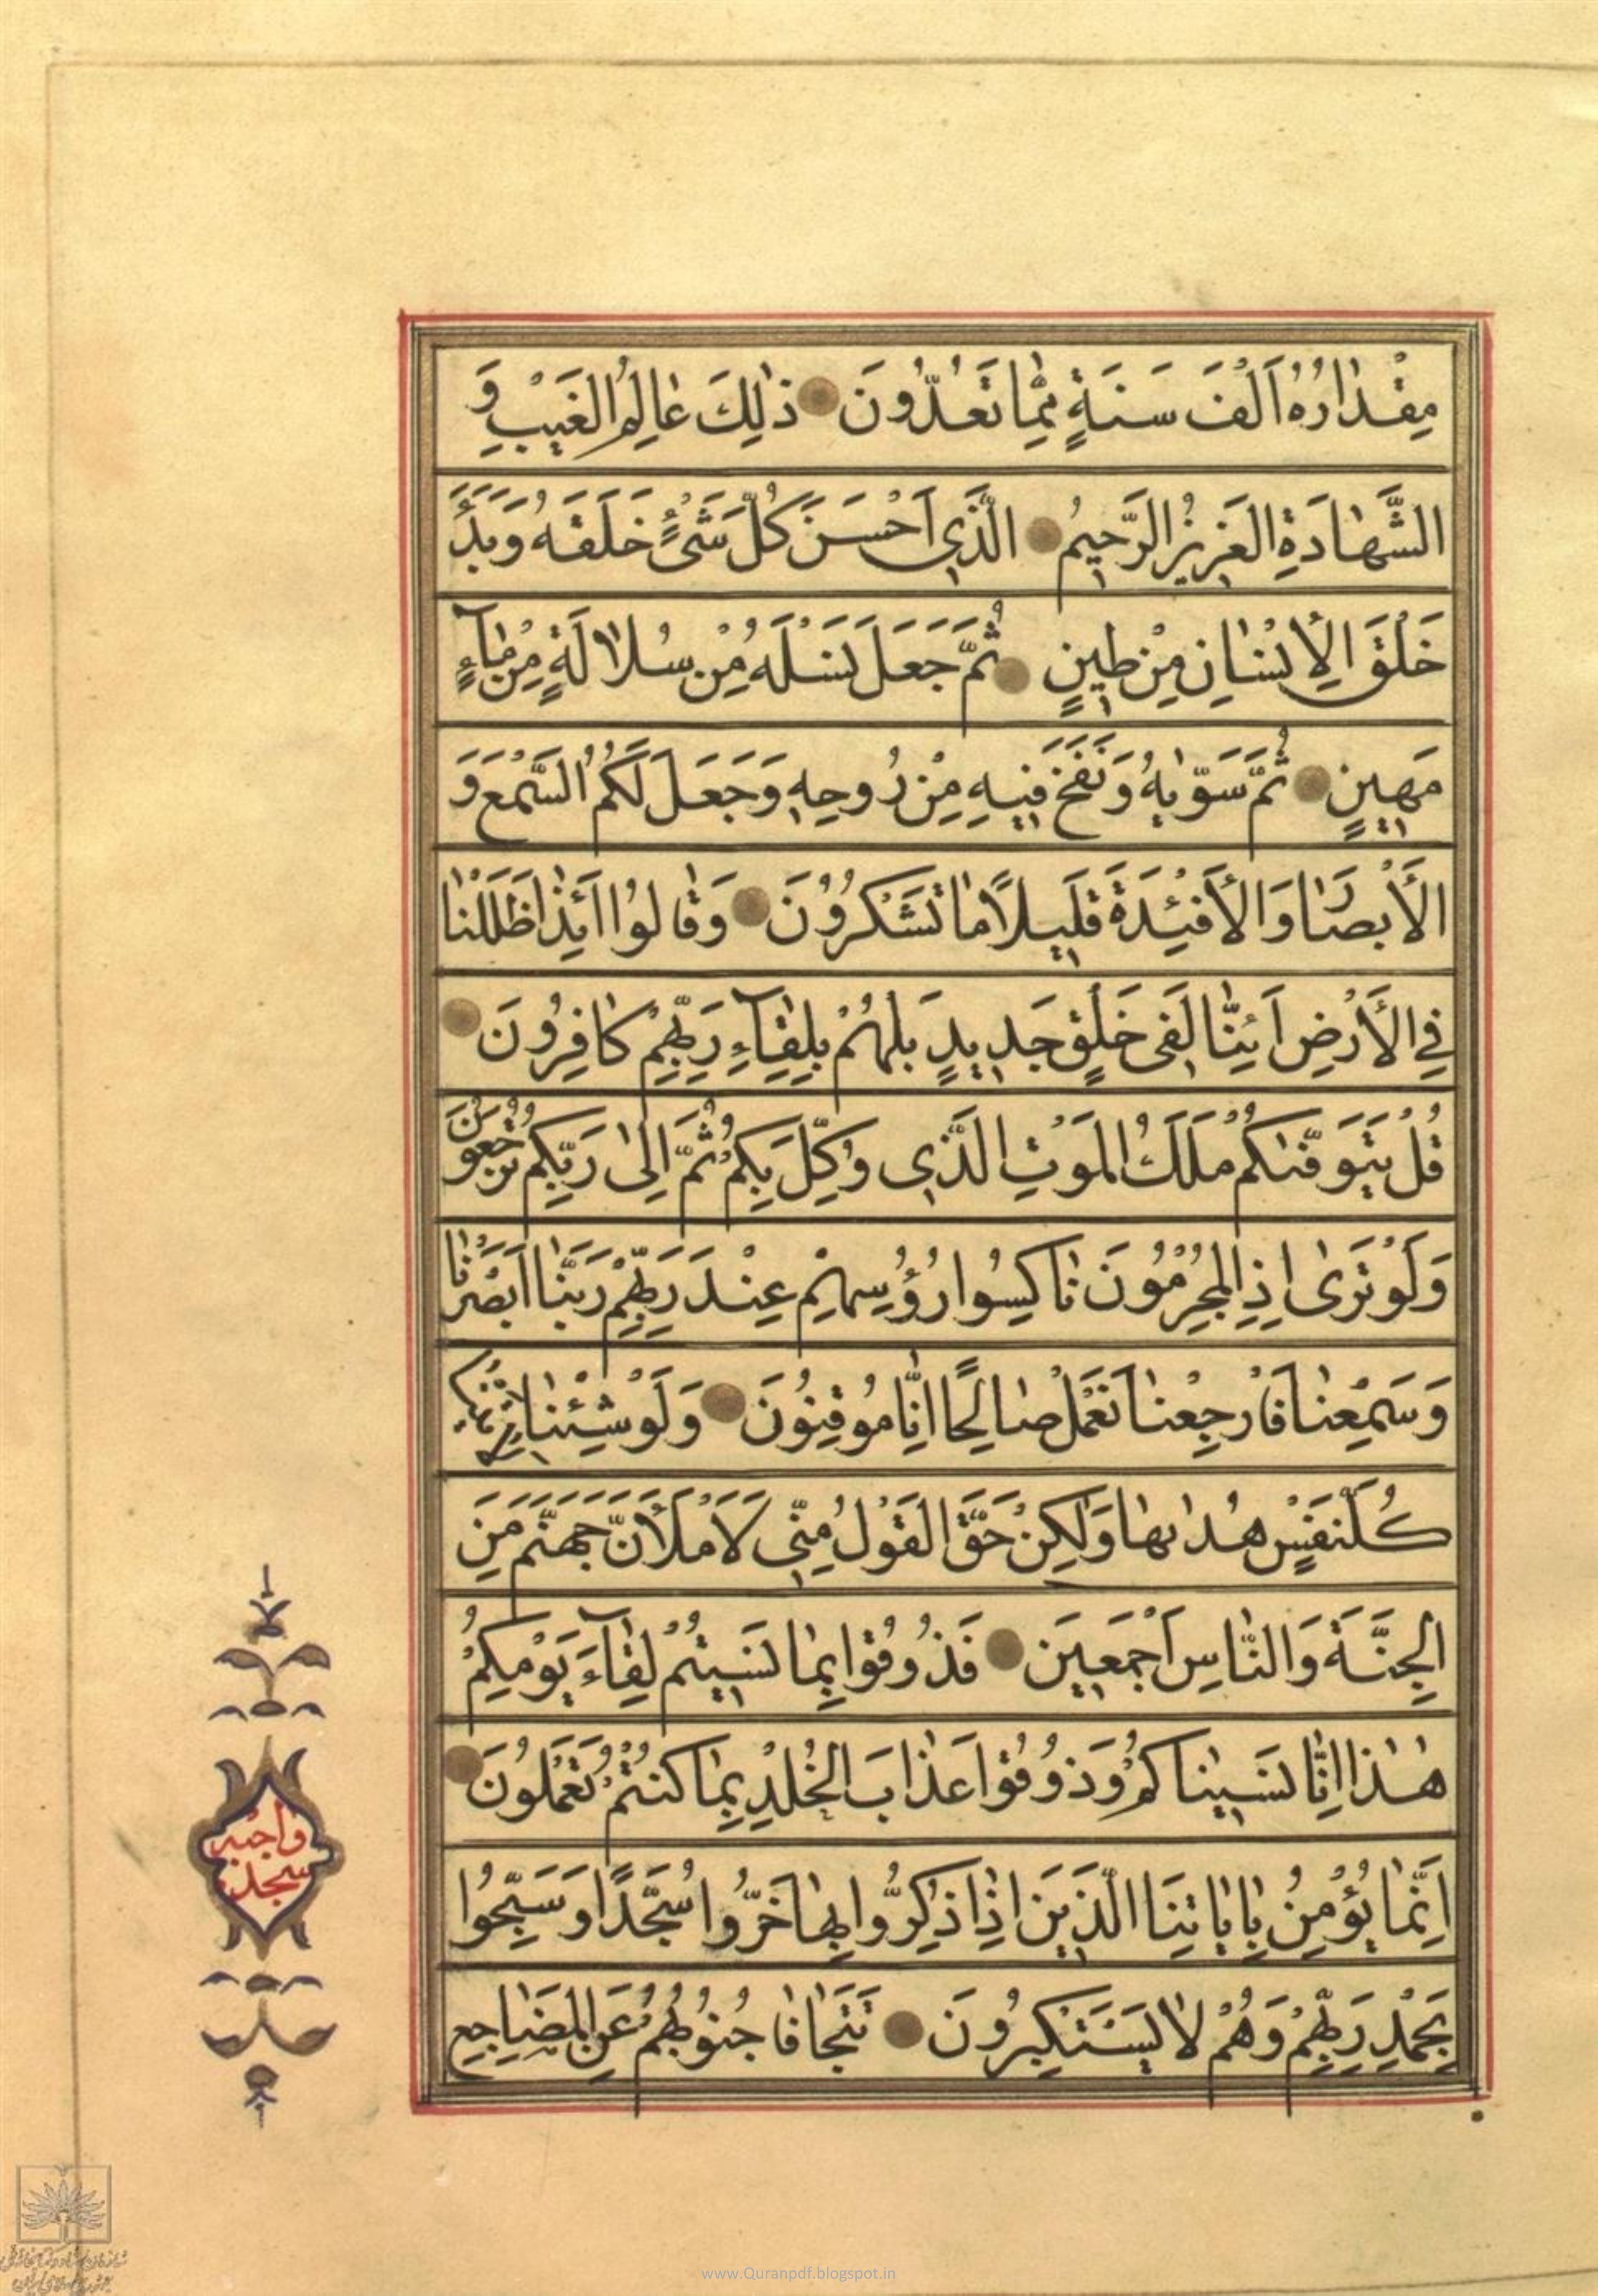 مِقْدٰارُهُ اَلْفَ سَنَةٍ مِمّٰا تَعُدُّونَ ذٰلِكَ عٰالِمُ الْغَيْبِ وَ
الشَّهٰادَةِ الْعَزِيزُ الرَّحِيمُ الَّذِي اَحْسَنَ كُلَّ شَىْءٍ خَلَقَهُ وَبَدَأَ
خَلْقَ الْاِنْسٰانِ مِنْ طِينٍ ثُمَّ جَعَلَ نَسْلَهُ مِنْ سُلاٰلَةٍ مِنْ مٰآءٍ
مَهِينٍ ثُمَّ سَوّٰيهُ وَنَفَخَ فِيهِ مِنْ رُوحِهِ وَجَعَلَ لَكُمُ السَّمْعَ وَ
الْأَبْصٰارَ وَالْأَفْئِدَةَ قَلِيلاً مٰا تَشْكُرُونَ وَقٰالُوا اَئِذٰا ضَلَلْنٰا
فِي الْأَرْضِ اَئِنّٰا لَفِى خَلْقٍ جَدِيدٍ بَلْ هُمْ بِلِقٰآءِ رَبِّهِمْ كٰافِرُونَ
قُلْ يَتَوَفّٰىكُمْ مَلَكُ الْمَوْتِ الَّذِي وُكِّلَ بِكُمْ ثُمَّ اِلىٰ رَبِّكُمْ تُرْجَعُونَ
وَلَوْ تَرىٰ اِذِ الْمُجْرِمُونَ نٰاكِسُوا رُؤُسِهِمْ عِنْدَ رَبِّهِمْ رَبَّنٰا اَبْصَرْنٰا
وَسَمِعْنٰا فَارْجِعْنٰا نَعْمَلْ صٰالِحًا اِنّٰا مُوقِنُونَ وَلَوْ شِئْنٰا لَاٰتَيْنٰا
كُلَّ نَفْسٍ هُدٰىهٰا وَلٰكِنْ حَقَّ الْقَوْلُ مِنِّى لَأَمْلَأَنَّ جَهَنَّمَ مِنَ
الْجِنَّةِ وَالنّٰاسِ اَجْمَعِينَ فَذُوقُوا بِمٰا نَسِيتُمْ لِقٰآءَ يَوْمِكُمْ
هٰذٰا اِنّٰا نَسِينٰاكُمْ وَذُوقُوا عَذٰابَ الْخُلْدِ بِمٰا كُنْتُمْ تَعْمَلُونَ
اِنَّمٰا يُؤْمِنُ بِاٰيٰاتِنَا الَّذِينَ اِذٰا ذُكِّرُوا بِهٰا خَرُّوا سُجَّدًا وَسَبَّحُوا
بِحَمْدِ رَبِّهِمْ وَهُمْ لاٰ يَسْتَكْبِرُونَ تَتَجٰافٰا جُنُوبُهُمْ عَنِ الْمَضٰاجِعِ
سجده
واجبه
www.Quranpdf.blogspot.in